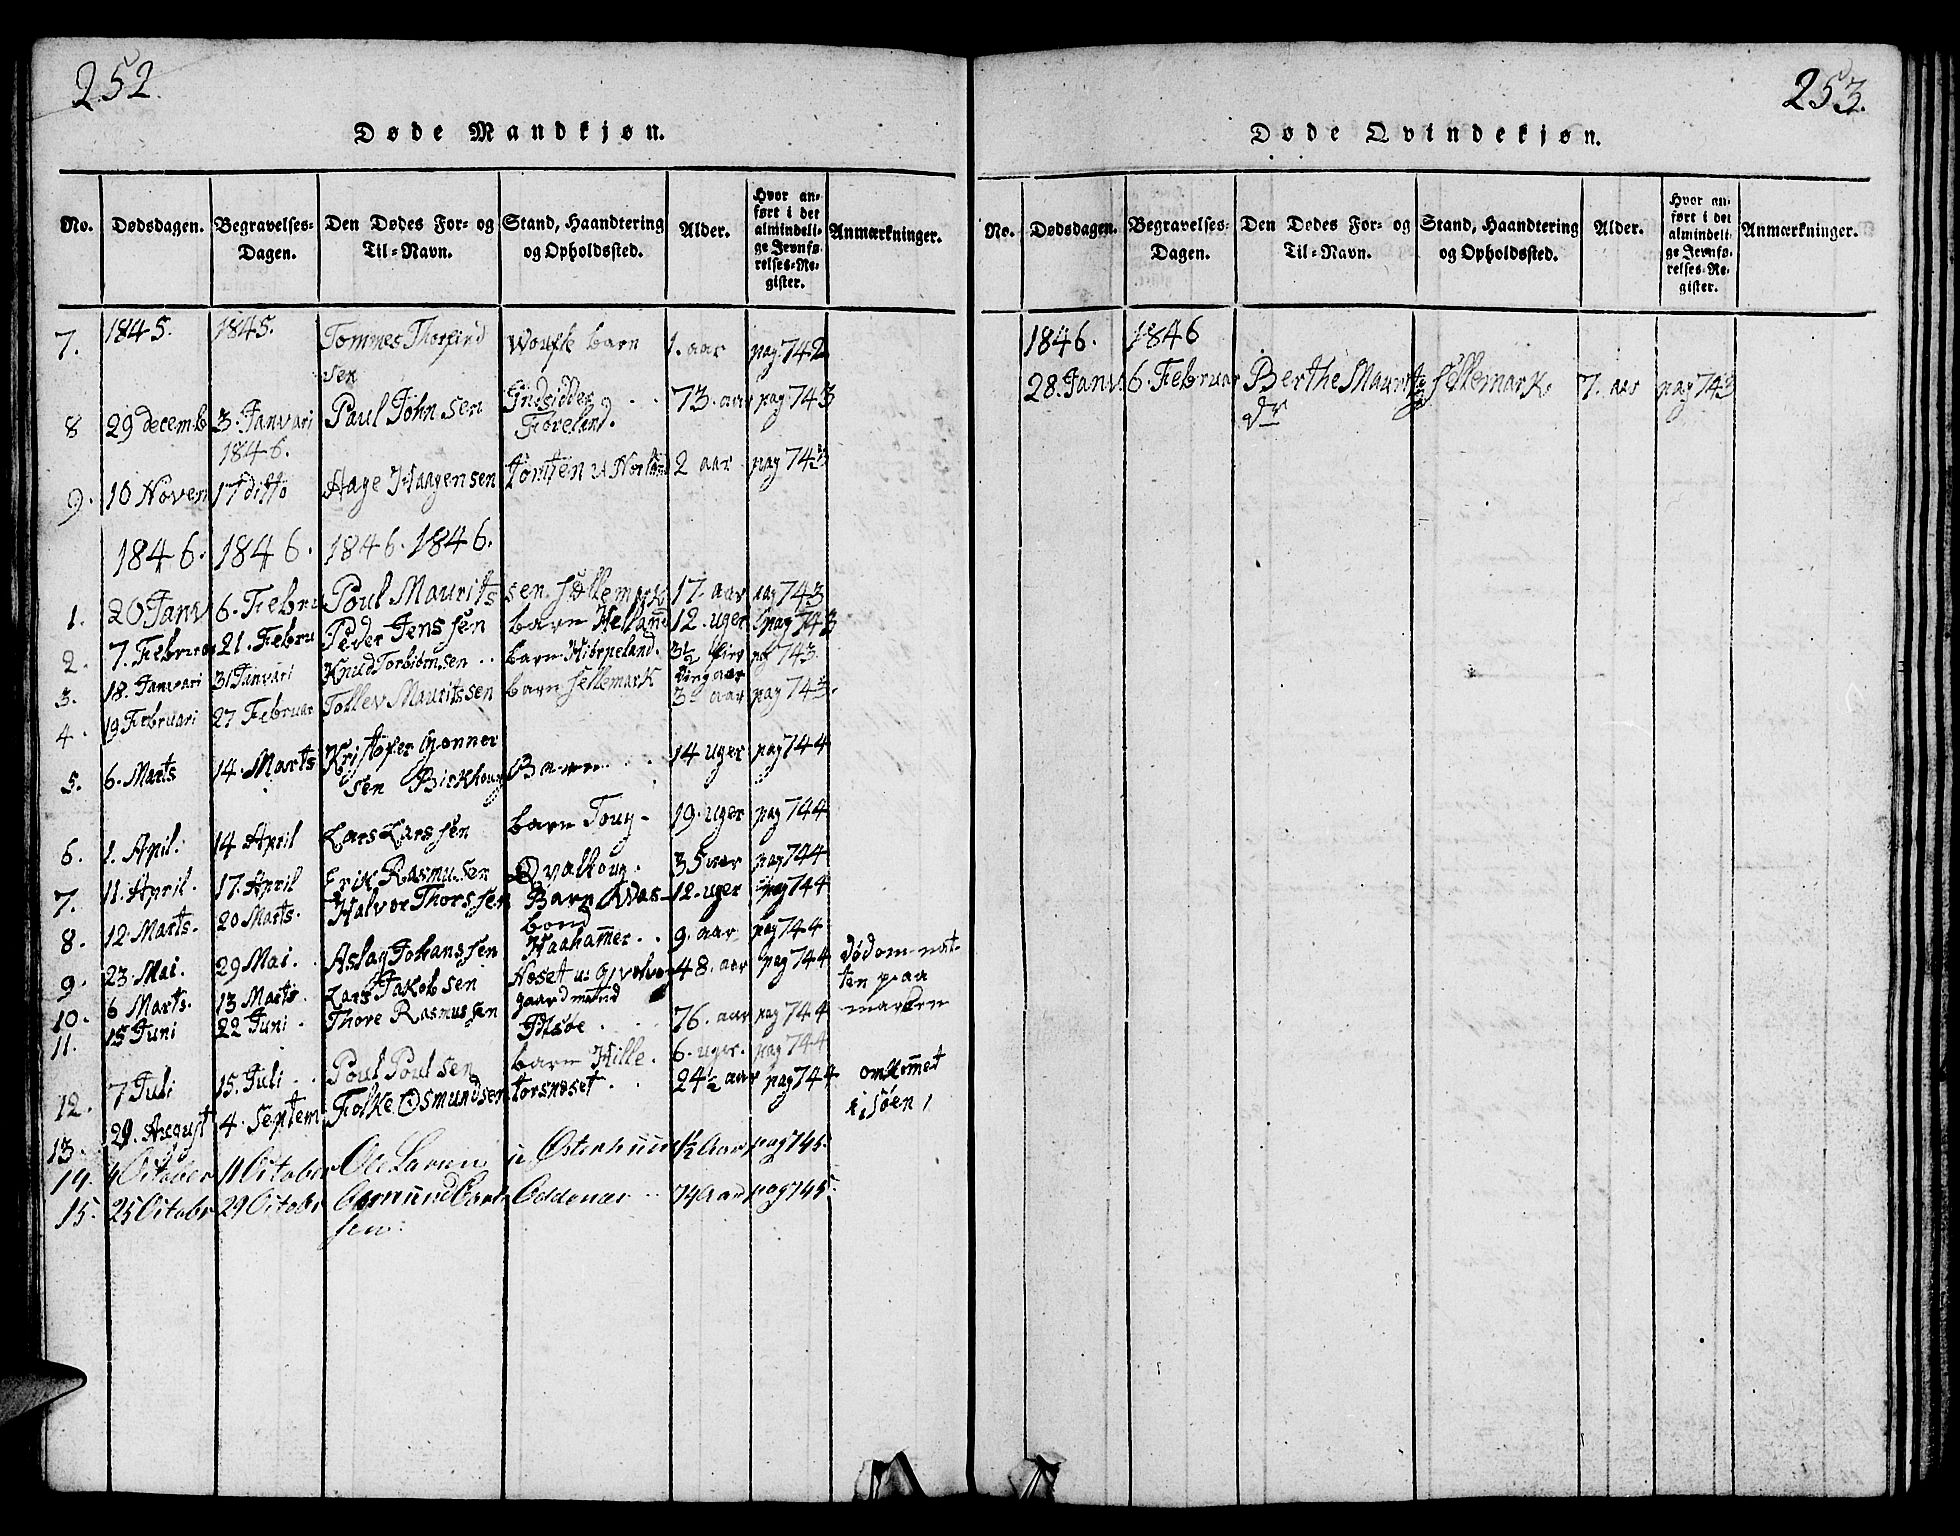 252.
Døde Mandkjøn.
No. Dødsdagen. Begravelses-Dagen. Den Dødes For- og Til-Navn. Stand, Haandtering og Opholdssted. Alder. Hvor anført i det almindelige Jevnførelses-Register. Anmærkninger.
7. 1845. 1845. Tommes Thorfind barn 1. aar pag. 742
sen
8 29 decemb 3. Janvari Paul John sen Indsidder 73. aar pag 743
1846. Fòreland.
9. 10 Novem 17 ditto Aage Haagensen Tomten u Norland 2 aar pag 743
1846. 1846. 1846. 1846.
1. 20 Janv 6. Febru Poul Maurits sen. sellemark 17. aar pag 743
2. 7. Februar 21. Febru Peder Jens sen barn Helland 12. uger pag 743
3. 18. Janvari 31 Janvari Knud Torbiørnsen barn Hiørpeland. 3½ pag 743.
4. 19 Februari 27 Februar Tollev Mauritssen barn sellemark 3 aar pag 743.
5. 6. Marts 14. Marts Kristofer Gonner Barn 14 uger pag 744
sen Birkhoug
6. 1. April. 14 April Lars Lars sen barn Toug 19. uger pag 744
7. 11. April. 17. April Erik Rasmusen Qvalhoug. 35 aar pag 744
8. 12. Marts. 20 Marts. Halvor Thors sen Barn Kvas- 12. uger pag 744
9. 23. Mai. 29 Mai. Aslag Johans sen Haahammer 9. aar pag 744
10. 6 Marts. 13 Marts. Lars Jakob sen Noset u. 48. aar pag 744 død om nat-
ten paa
marken
gaard mand
11. 15 Juni 22 Juni Thore Rasmus sen Idsøe 76. aar pag 744
12. 7 Juli 15. Juli Poul Poul sen barn Hille. 6. uger. pag 744
13. 29. August 4. Septem Folke Osmundsen torsnæset. 24½ aar pag 744 omkommet
i søen
14. 4 October 11 October Ole Larsen u Østerhuus ½ Aar pag 745.
15. 25 Octobr 29 Octobr Asmund Oddenæs 74 Aar pag 745.
sen.
253.
Døde Qvindekjøn.
No. Dødsdagen. Begravelses-Dagen. Den Dødes For- og Til-Navn. Stand, Haandtering og Opholdssted. Alder. Hvor anført i det almindelige Jevnførelses-Register. Anmærkninger.
1846. 1846
28. Janv. 6. Februar Berthe Maurits sellemark. 7. aar pag 743
dr